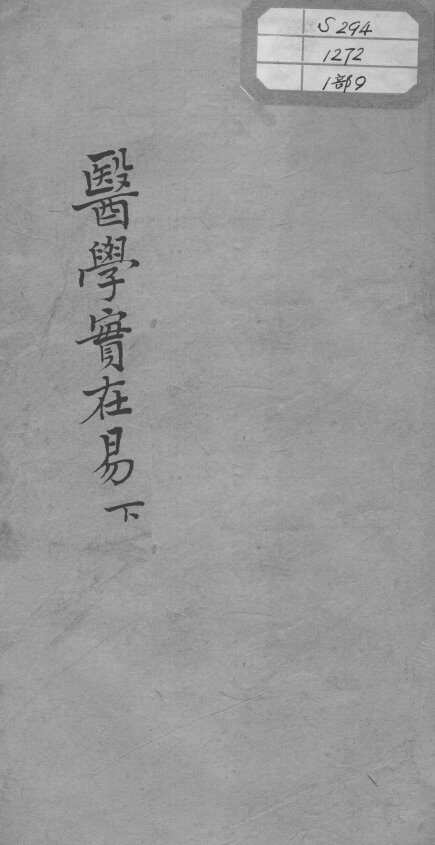 S294
1272
1部9
醫學實在易下